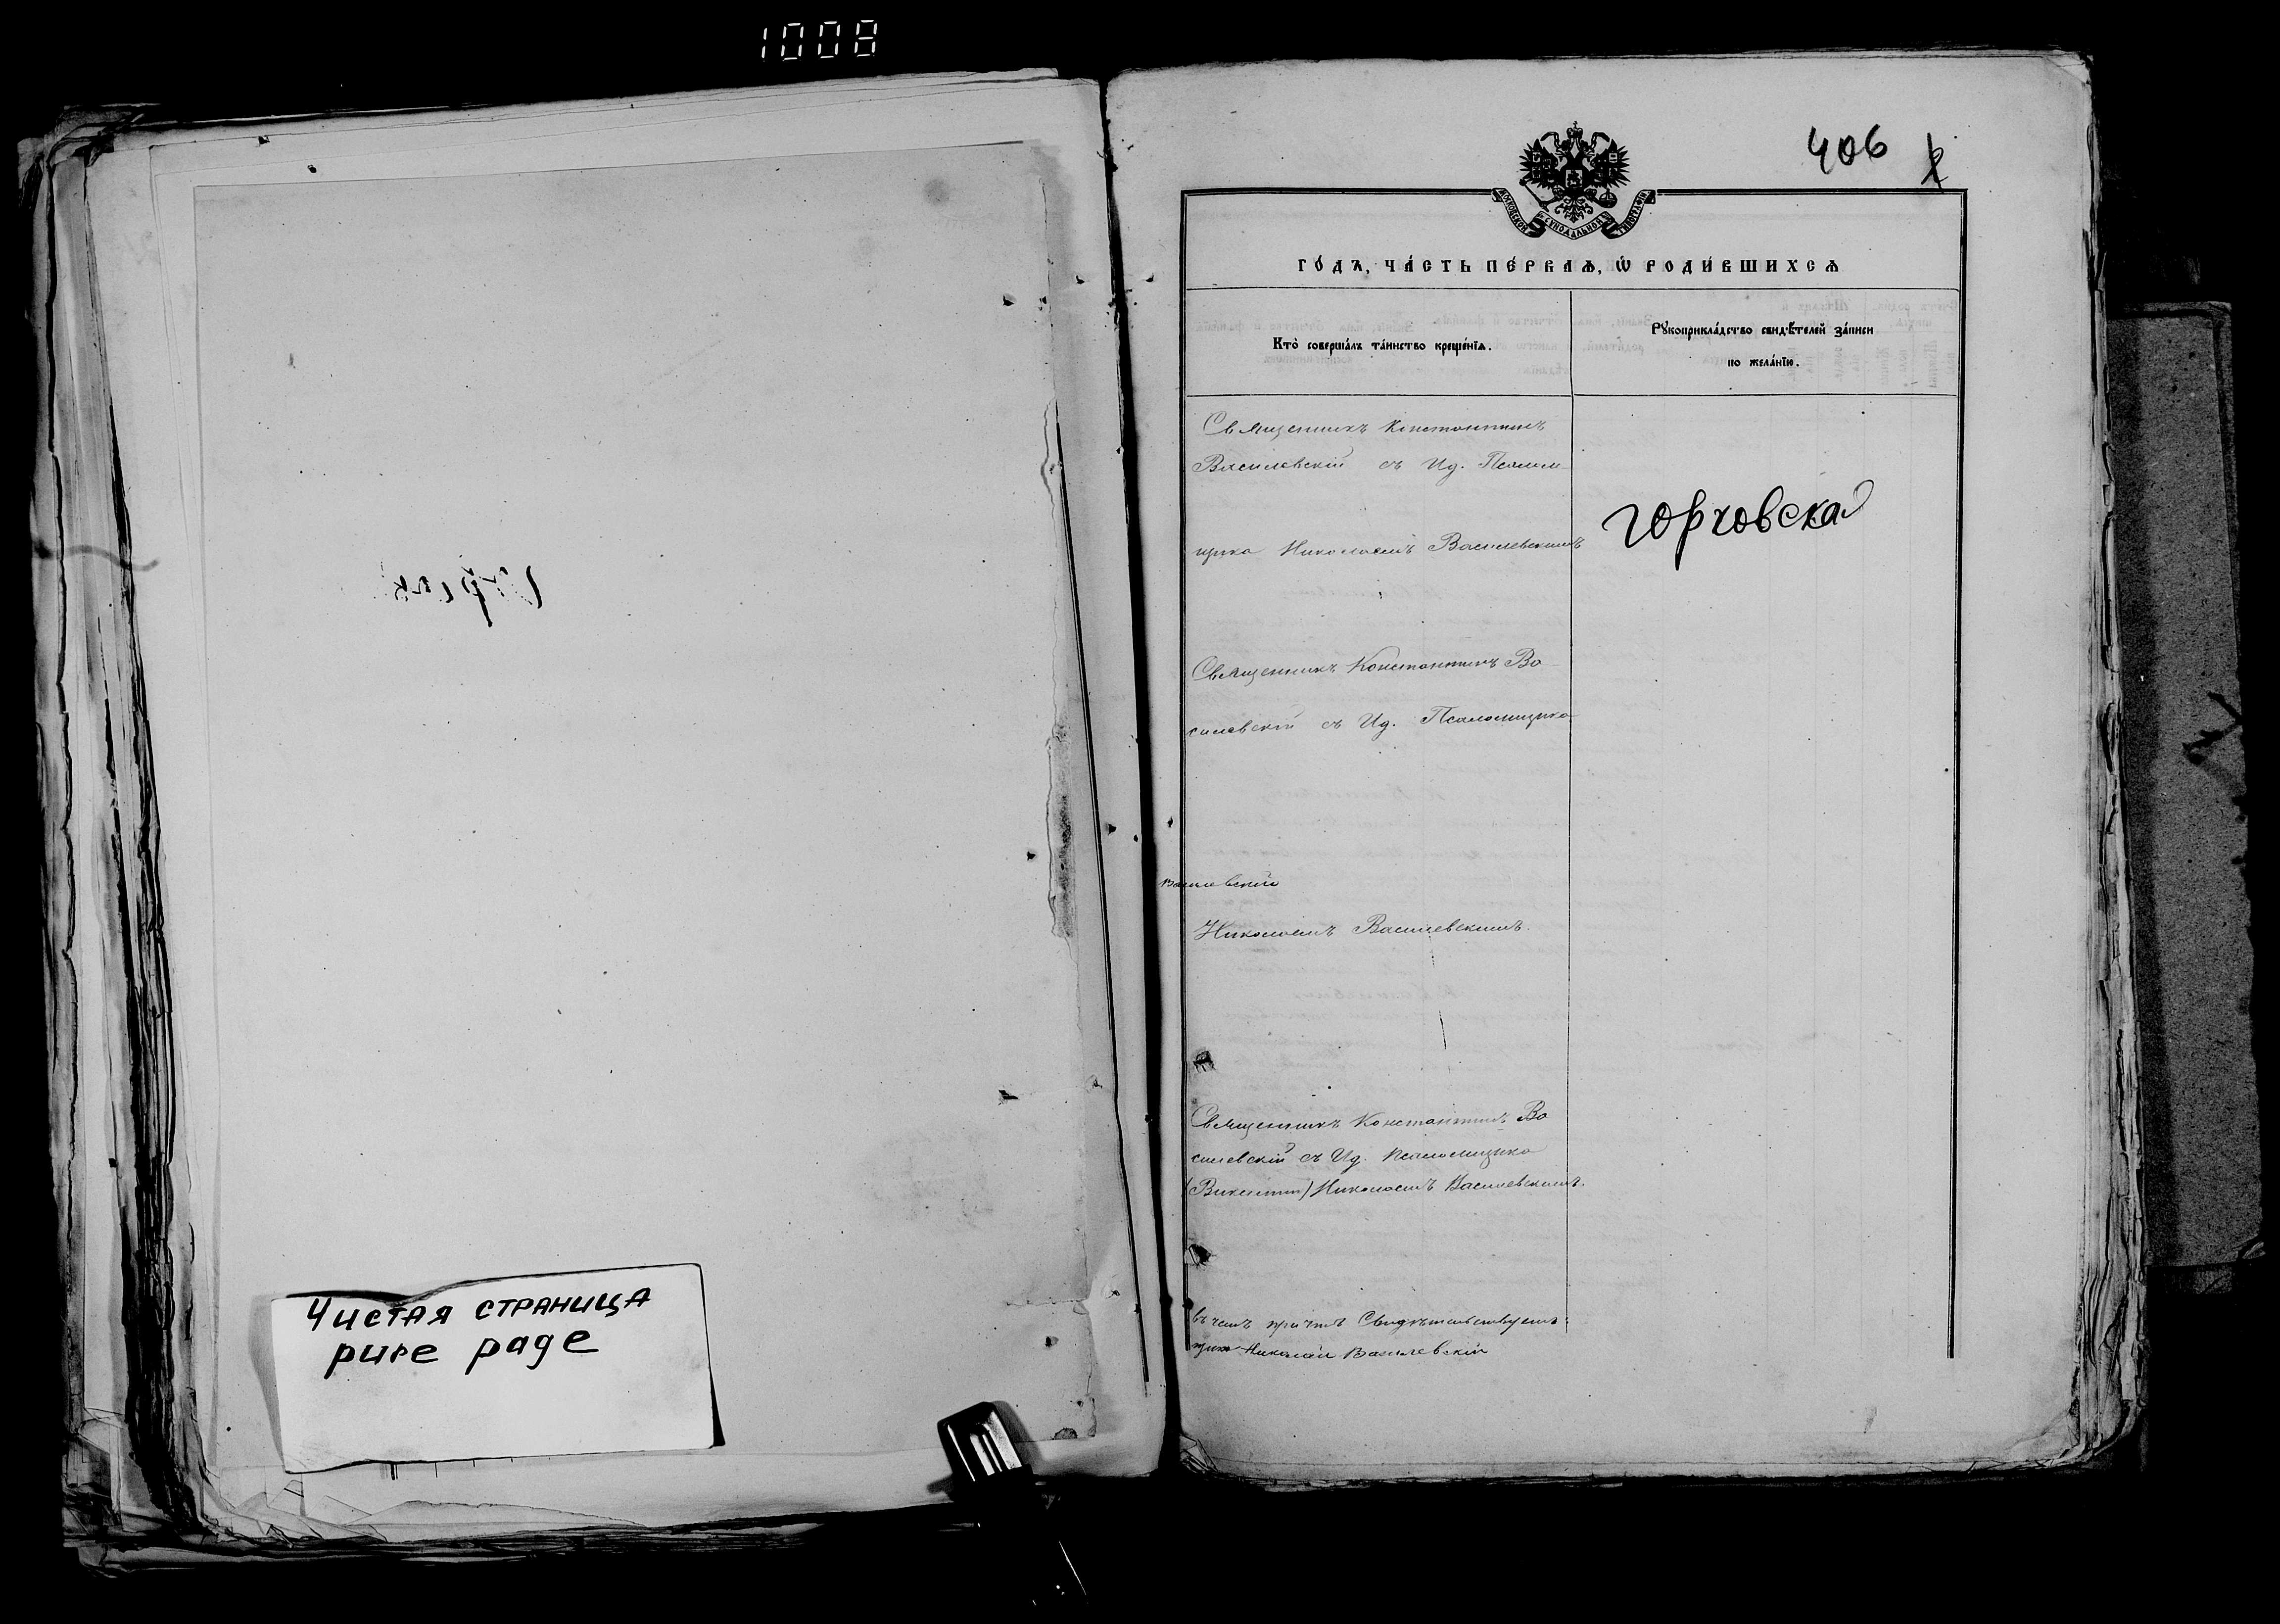 1008
Чистая страница
pure page
406
МОСКОВСКОЙ СѴНОДАЛЬНОЙ ТИПОГРАФІИ
ГО́ДЪ, ЧА́СТЬ ПЕ́РВАѦ, Ѡ҆ РОДИ́ВШИХСѦ
Кто̀ соверша́лъ та́инство креще́нїѧ.
Рꙋкоприкла́дство свидѣ́телей за́писи
по жела́нїю.
Священникъ Константинъ
Василевскій съ Ид. Псалом-
щика Николаемъ Василевскимъ
Горховская
Священникъ Константинъ Ва-
силевскій съ Ид. Псаломщика
Василевскій
Николаемъ Василевскимъ.
Священникъ Константинъ Ва
силевскій съ Ид. Псаломщика
Николаемъ Василевскимъ.
въ чемъ причтъ Свидѣтельствуетъ:
Николай Василевскій